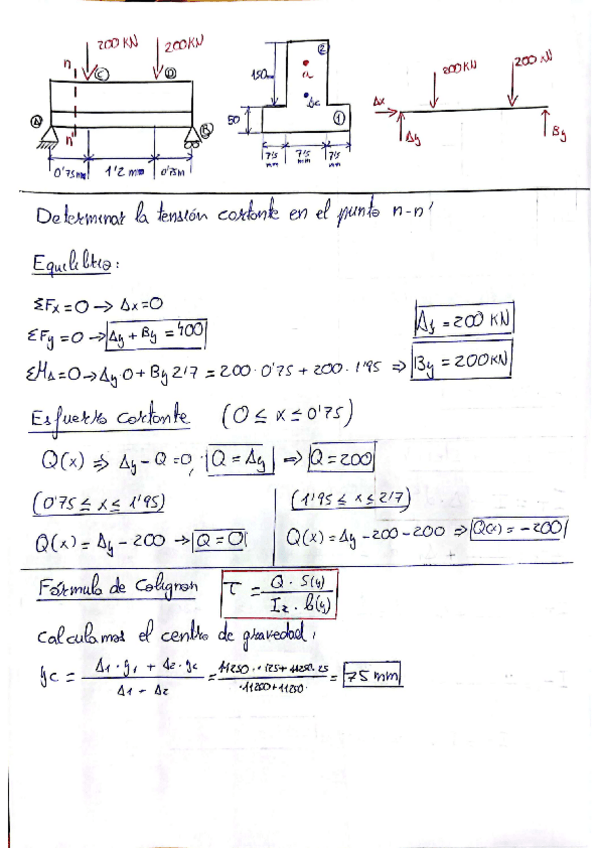 200 KN 200 KN
n
C D
A B
n'
0'75m 1'2 mm 0'75m
2
150mm
a
Δc
50
1
7'5 mm 7'5 mm 7'5 mm
200 KN 200 KN
Δx
Δy
By
Determinar la tensión cortante en el punto n-n'
Equilibrio:
ΣFx=0 → Δx=0
ΣFy=0 → Δy + By = 400
Ay = 200 KN
ΣMΔ=0 → Δy·0 + By 2'7 = 200·0'75 + 200·1'95 ⇒ By = 200KN
Esfuerzo cortante (0 ≤ x ≤ 0'75)
Q(x) ⇒ Δy - Q = 0, Q = Δy ⇒ Q = 200
(0'75 ≤ x ≤ 1'95) (1'95 ≤ x ≤ 2'7)
Q(x) = Δy - 200 → Q = 0 Q(x) = Δy - 200 - 200 ⇒ Q(x) = -200
Fórmula de Colignon τ = Q · S(y) / Iz · b(y)
Calculamos el centro de gravedad,
yc = Δ1·y1 + Δ2·yc / Δ1 - Δ2 = 11250··125 + 11250·25 / ·11200+11250· = 75 mm